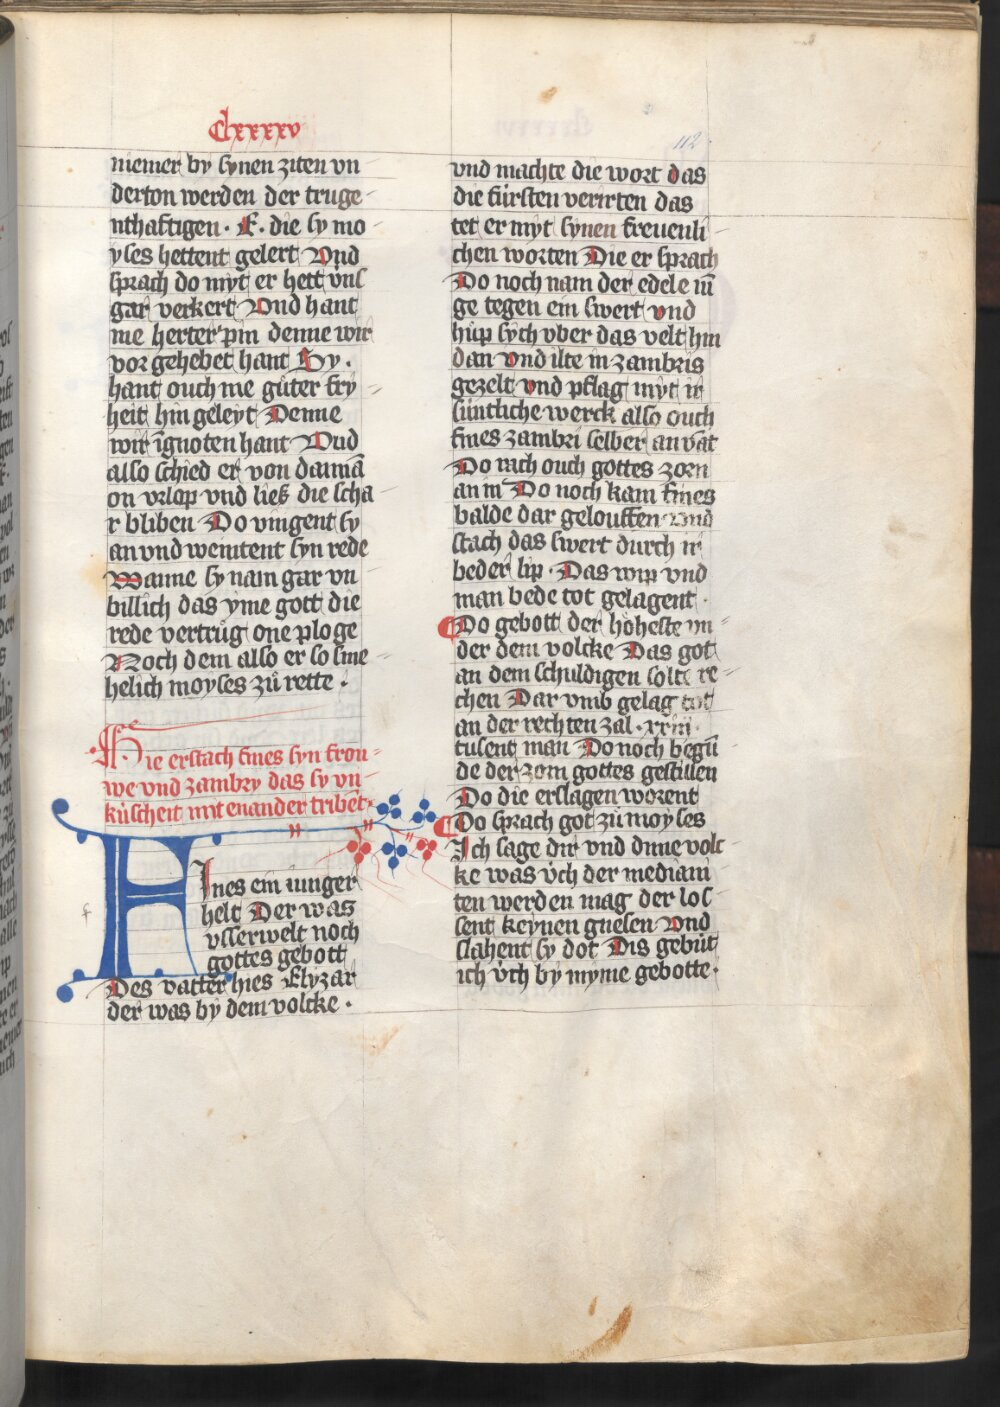 Clxxxxv
112
niemer by synen ziten vn
derton werden der truge
nthaftigen · E · die sy mo
yses hettent gelert Vnd
sprach do myt er hett vns
gar verkert Vnd hant
me herter pin denne wir
vor gehebet hant Sy ·
hant ouch me güter fry
heit hin geleyt Denne
wir ignoten hant Vnd
also schied er von daman
on vrlop vnd ließ die scha
r bliben Do vingent sy
an vnd wenitent syn rede
Wanne sy nam gar vn
billich das yme gott die
rede vertrüg one ploge
Noch dem also er so sme
helich moyses zü rette ·
Hie erstach fines syn frou
we vnd zambry das sy vn
küscheit mit enander tribēt
f
FInes ein iunger
helt Der was
vsserwelt noch
gottes gebott
Des vatter hies Elyzar
der was by dem volcke ·
vnd machte die wort das
die fürsten verirten das
tet er myt synen freuenli
chen worten Die er sprach
Do noch nam der edele iū
ge tegen ein swert vnd
hüp sych vber das velt hin
dan vnd ilte in zambris
gezelt vnd pflag myt ir
süntliche werck also ouch
fines zambri selber an vāt
Do rach ouch gottes zorn
an in Do noch kam fines
balde dar gelouffen vnd
stach das swert durch ir
beder lip · Das wip vnd
man bede tot gelagent ·
Do gebott der höheste vn
der dem volcke Das got
an dem schuldigen solte re
chen Dar vmb gelag tot
an der rechten zal · xxiiij ·
tusent man Do noch begū
de der zorn gottes gestillen
Do die erslagen worent
Do sprach got zü moyses
Ich sage dir vnd dime volc
ke was v̈ch der mediani
ten werden mag der los
sent keynen gnesen Vnd
slahent sy dot Dis gebüt
ich v̈ch by myme gebotte ·